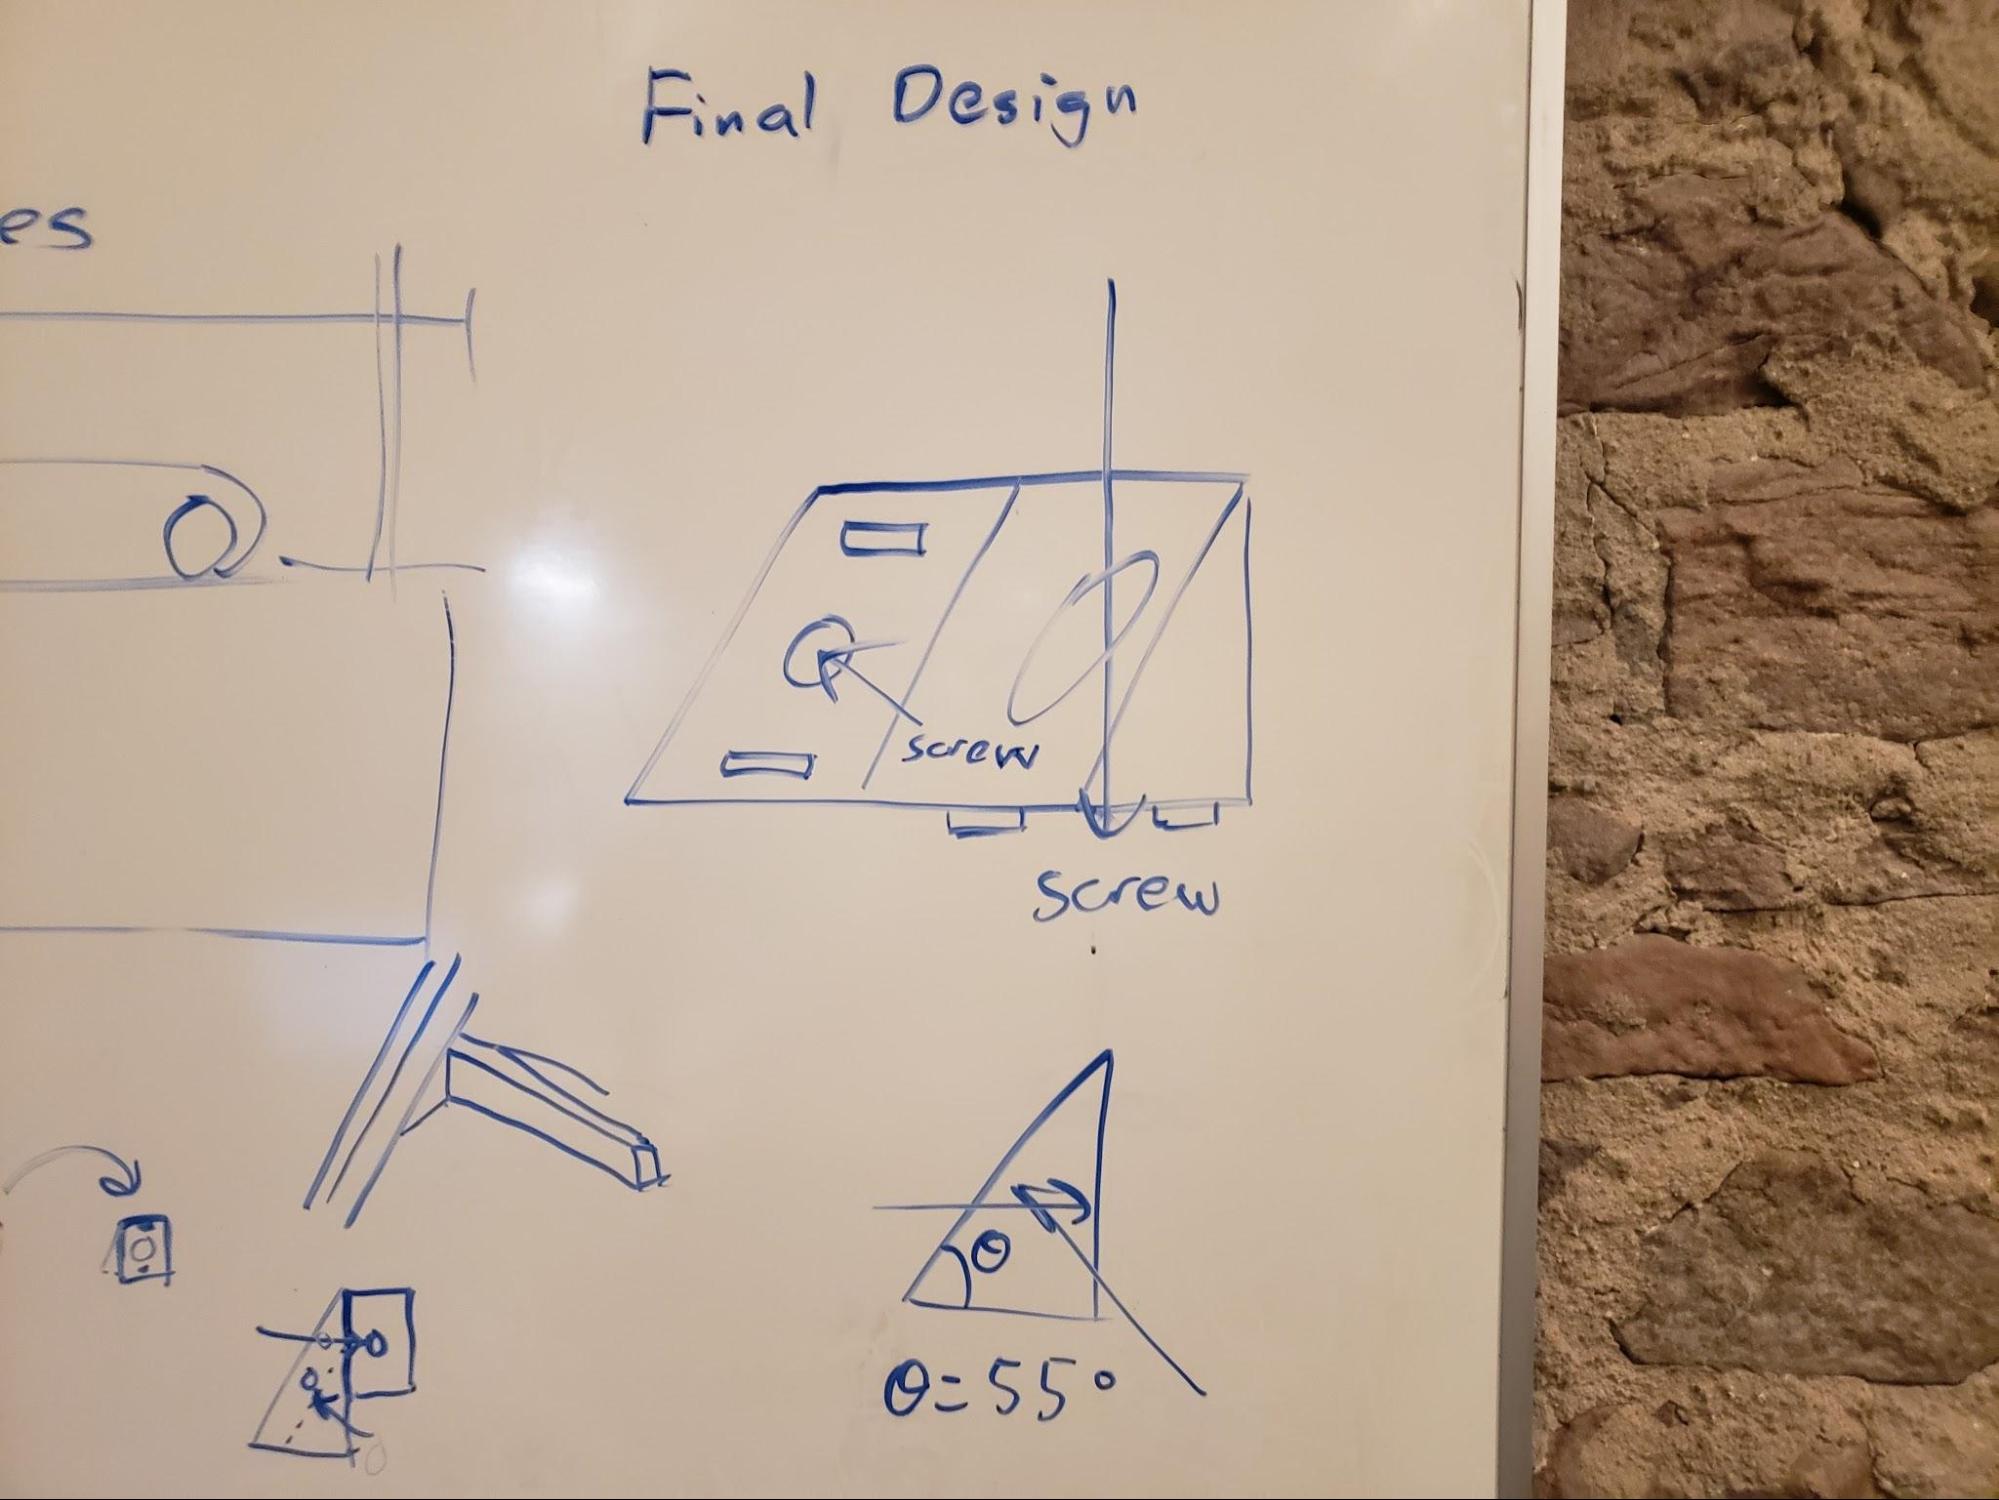 Final Design
es
screw
screw
θ
θ = 55°